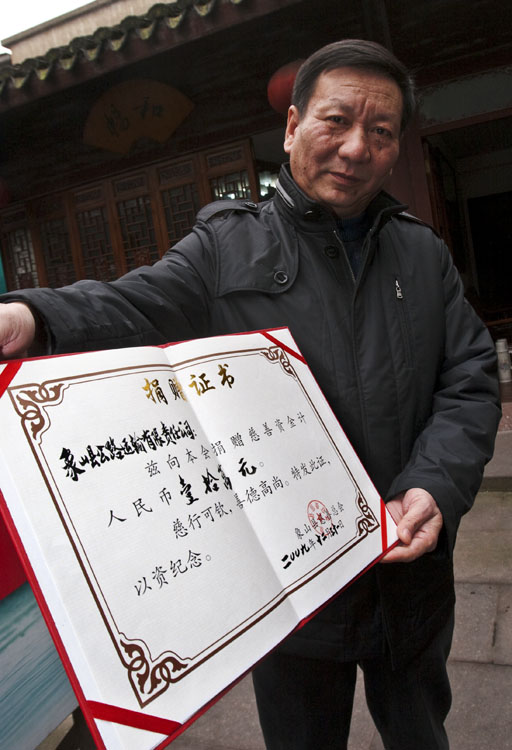 捐赠证书
象山县公路运输有限责任公司:
兹向本会捐赠慈善资金计
人民币壹拾萬元。
慈行可钦、善德高尚。特发此证,
以资纪念。
象山县慈善总会
2009年十二月 日